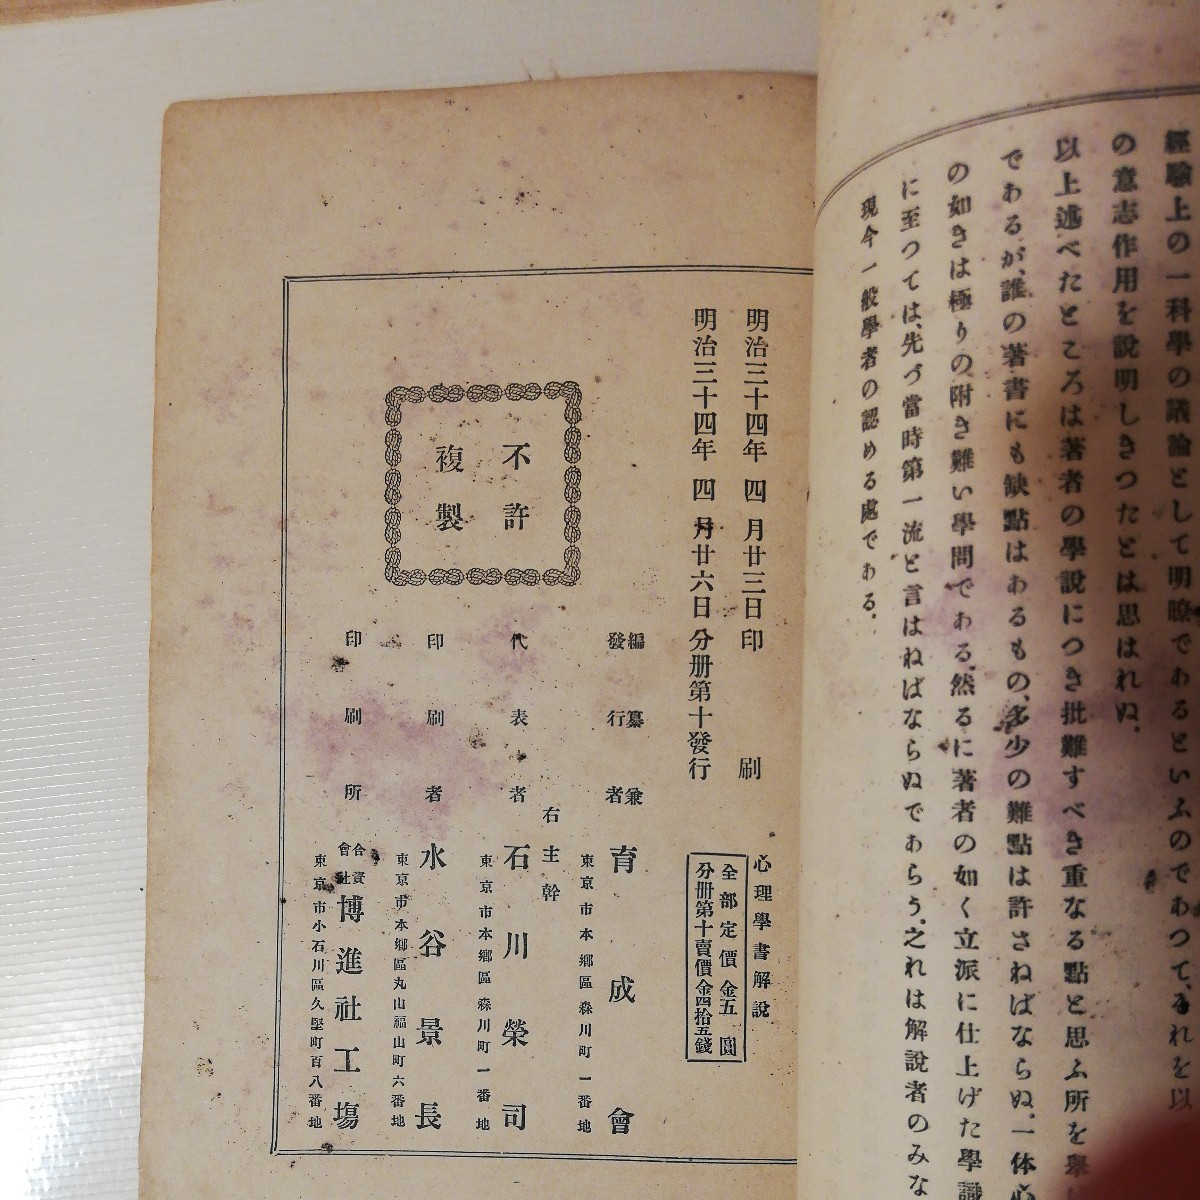 經驗上の一科學の議論として明瞭であるといふのであつて、それを以
の意志作用を說明しきつたとは思はれぬ。
以上述べたところは著者の學說につき批難すべき重なる點と思ふ所を擧
であるが、誰の著書にも缺點はあるもの、多少の難點は許さねばならぬ。一体心
の如きは極りの附き難い學問である、然るに著者の如く立派に仕上げた學識
に至つては、先づ當時第一流と言はねばならぬであらう。之れは解說者のみな
現今一般學者の認める處である。
明治三十四年四月廿三日印刷
明治三十四年四月廿六日分册第十發行
心理學書解說
全部定價金五圓
分册第十賣價金四拾五錢
不許
複製
編纂兼
發行者
育成會
東京市本鄕區森川町一番地
右主幹
代表者
石川榮司
東京市本鄕區森川町一番地
印刷者
水谷景長
東京市本鄕區丸山福山町六番地
印刷所
合資
會社
博進社工塲
東京市小石川區久堅町百八番地